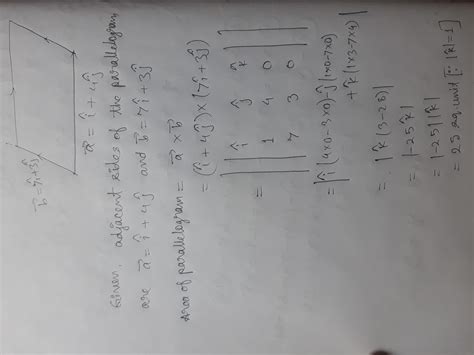 b⃗ = 7î+3ĵ
a⃗ = î + 4ĵ
Given, adjacent sides of the parallelogram
are a⃗ = î + 4ĵ and b⃗ = 7î + 3ĵ
Area of parallelogram = a⃗ × b⃗
= (î + 4ĵ) × (7î + 3ĵ)
= || î ĵ k̂ ||
1 4 0
7 3 0
= |î (4×0-3×0) - ĵ (1×0-7×0)
+ k̂ (1×3-7×4)|
= |k̂ (3-28)|
= |-25 k̂|
= |-25| |k̂|
= 25 sq. unit [∵ |k̂| = 1]